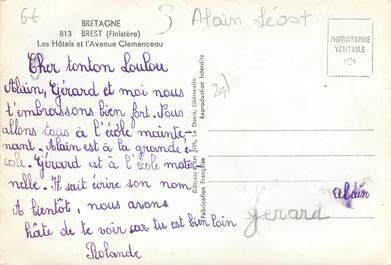 6€
3 Alain Léost
BRETAGNE
813 BREST (Finistère)
Les Hôtels et l'Avenue Clemenceau
PHOTOGRAPHIE
VÉRITABLE
Cher tonton Loulou
Alain, Gérard et moi nous
t'embrassons bien fort. Nous
allons tous à l'école mainte-
nant. Alain est à la grande é-
cole. Gérard est à l'école mater-
nelle. Il sait écrire son nom.
A bientôt, nous avons
hâte de te voir car tu est bien loin
Rolande
29)
Reproduction Interdite
Fabrication Française
alain
gerard